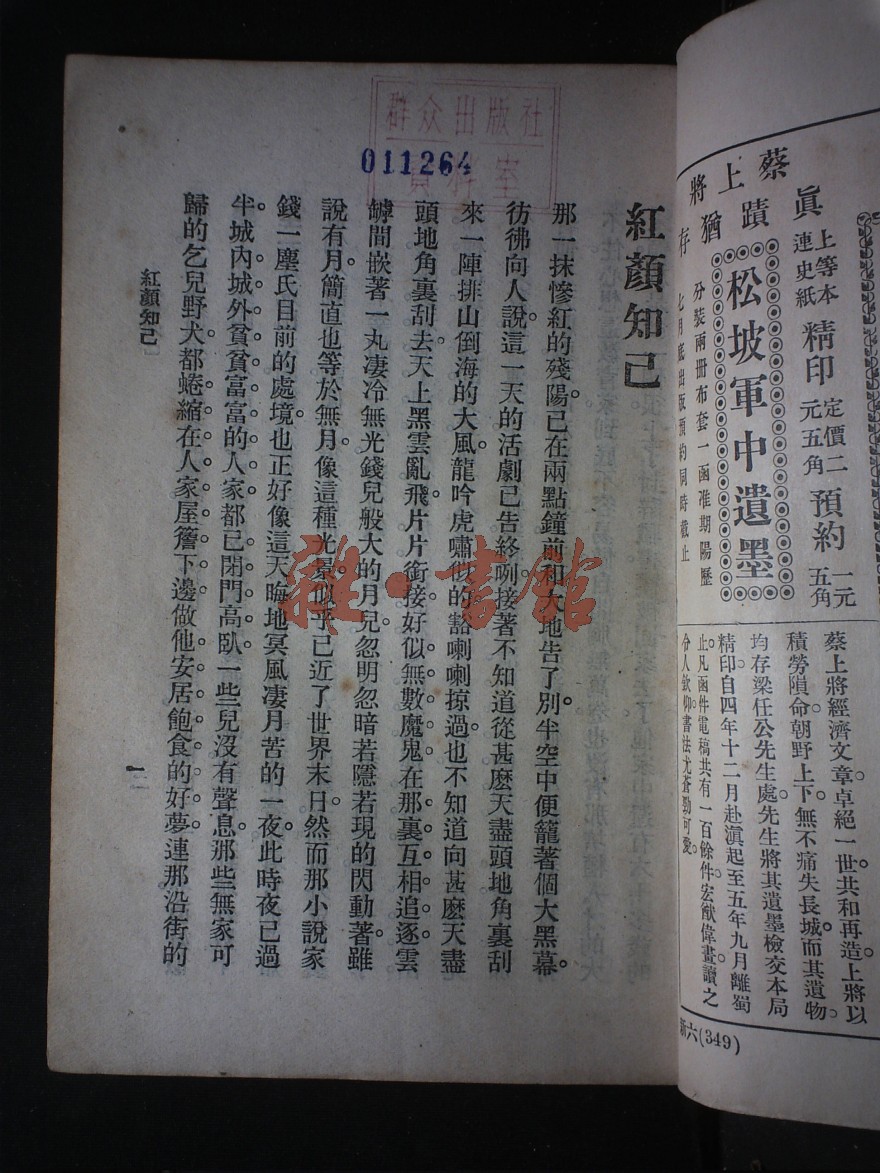 蔡上將
真蹟猶存
上等本
連史紙
精印
定價二
元五角
預約
一元
五角
松坡軍中遺墨
分裝兩冊布套一函准期陽歷
七月底出版預約同時截止
蔡上將經濟文章卓絕一世共和再造上將以
積勞隕命朝野上下無不痛失長城而其遺物
均存梁任公先生處先生將其遺墨檢交本局
精印自四年十二月赴滇起至五年九月離蜀
止凡函件電稿共有一百餘件宏猷偉畫讀之
令人欽仰書法尤蒼勁可愛
新六(349)
群众出版社
資料室
011264
紅顏知己
那一抹慘紅的殘陽。已在兩點鐘前和大地告了別。半空中便籠著個大黑幕。
彷彿向人說這一天的活劇已告終咧。接著不知道從甚麼天盡頭地角裏刮
來一陣排山倒海的大風。龍吟虎嘯似的豁喇喇掠過。也不知道向甚麼天盡
頭地角裏刮去。天上黑雲亂飛。片片銜接。好似無數魔鬼在那裏互相追逐。雲
罅間嵌著一丸凄冷無光錢兒般大的月兒。忽明忽暗若隱若現的閃動著。雖
說有月。簡直也等於無月。像這種光景。似乎已近了世界末日。然而那小說家
錢一塵氏目前的處境。也正好像這天晦地冥風凄月苦的一夜。此時夜已過
半。城內城外貧貧富富的人家都已閉門高臥。一些兒沒有聲息。那些無家可
歸的乞兒野犬。都蜷縮在人家屋簷下邊。做他安居飽食的好夢。連那沿街的
紅顏知己
一
雜·書館